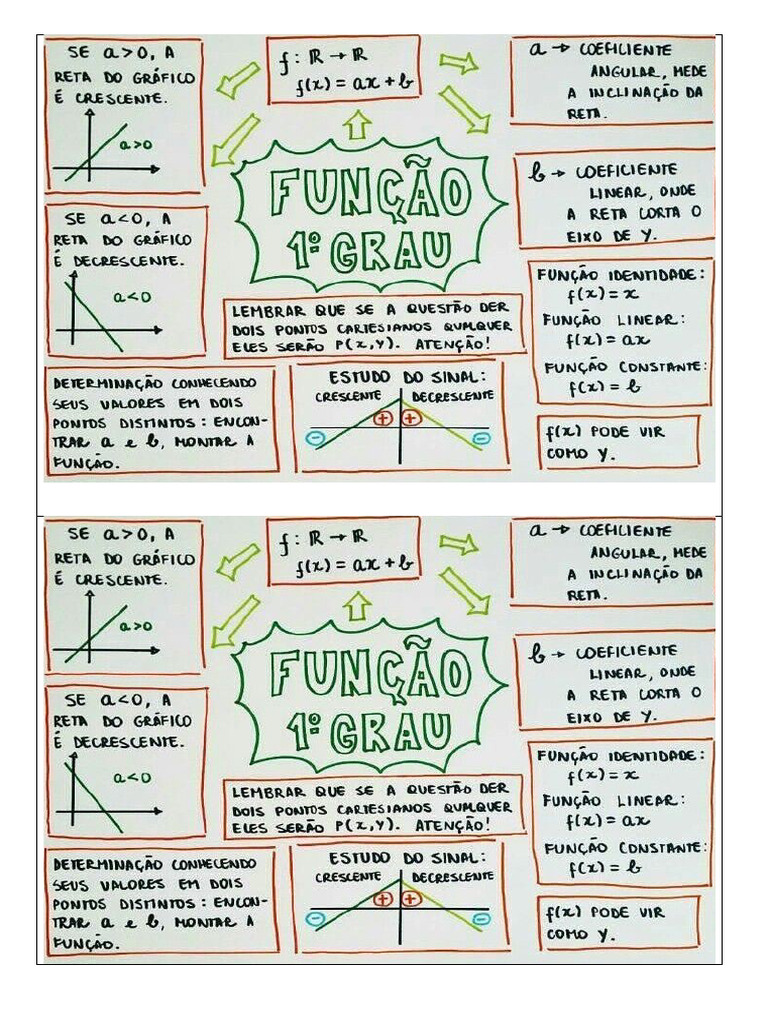 SE a>0, A
RETA DO GRÁFICO
É CRESCENTE.
a>0
f: ℝ → ℝ
f(x) = ax + b
a → COEFICIENTE
ANGULAR, MEDE
A INCLINAÇÃO DA
RETA.
FUNÇÃO
1º GRAU
b → COEFICIENTE
LINEAR, ONDE
A RETA CORTA O
EIXO DE Y.
SE a<0, A
RETA DO GRÁFICO
É DECRESCENTE.
a<0
LEMBRAR QUE SE A QUESTÃO DER
DOIS PONTOS CARTESIANOS QUALQUER
ELES SERÃO P(x,y). ATENÇÃO!
FUNÇÃO IDENTIDADE:
f(x) = x
FUNÇÃO LINEAR:
f(x) = ax
FUNÇÃO CONSTANTE:
f(x) = b
DETERMINAÇÃO CONHECENDO
SEUS VALORES EM DOIS
PONTOS DISTINTOS: ENCON-
TRAR a e b, MONTAR A
FUNÇÃO.
ESTUDO DO SINAL:
CRESCENTE DECRESCENTE
+ +
- -
f(x) PODE VIR
COMO Y.
SE a>0, A
RETA DO GRÁFICO
É CRESCENTE.
a>0
f: ℝ → ℝ
f(x) = ax + b
a → COEFICIENTE
ANGULAR, MEDE
A INCLINAÇÃO DA
RETA.
FUNÇÃO
1º GRAU
b → COEFICIENTE
LINEAR, ONDE
A RETA CORTA O
EIXO DE Y.
SE a<0, A
RETA DO GRÁFICO
É DECRESCENTE.
a<0
LEMBRAR QUE SE A QUESTÃO DER
DOIS PONTOS CARTESIANOS QUALQUER
ELES SERÃO P(x,y). ATENÇÃO!
FUNÇÃO IDENTIDADE:
f(x) = x
FUNÇÃO LINEAR:
f(x) = ax
FUNÇÃO CONSTANTE:
f(x) = b
DETERMINAÇÃO CONHECENDO
SEUS VALORES EM DOIS
PONTOS DISTINTOS: ENCON-
TRAR a e b, MONTAR A
FUNÇÃO.
ESTUDO DO SINAL:
CRESCENTE DECRESCENTE
+ +
- -
f(x) PODE VIR
COMO Y.